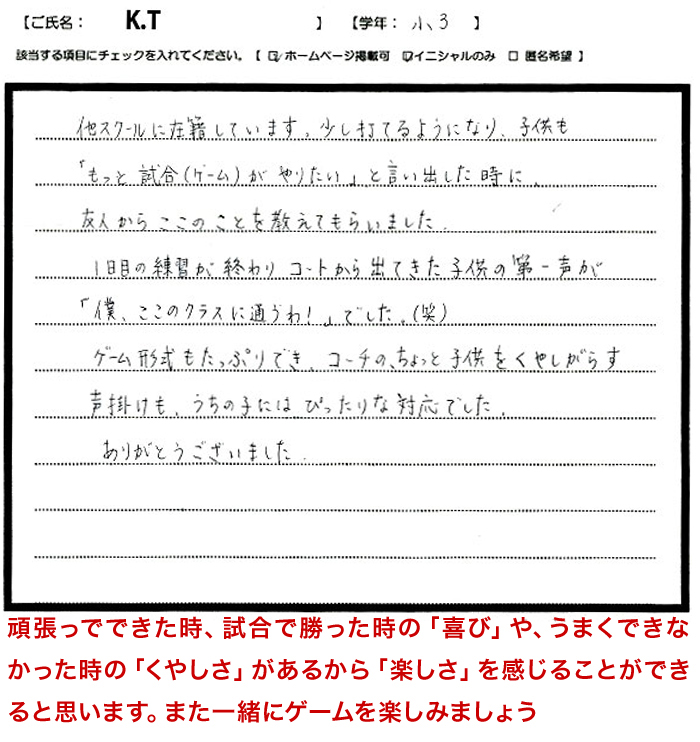 【ご氏名： K.T 】 【学年： 小、3 】
該当する項目にチェックを入れてください。【 ☑ ホームページ掲載可 ☑イニシャルのみ □ 匿名希望 】
他スクールに在籍しています。少し打てるようになり、子供も
「もっと 試合(ゲーム)が やりたい」と言い出した時に、
友人から ここの ことを教えてもらいました。
1日目の練習が終わり コートから出てきた子供の第一声が
「僕、ここのクラスに通うわ!」でした。(笑)
ゲーム形式もたっぷりでき、コーチの、ちょっと子供をくやしがらす
声掛けも、うちの子には ぴったりな対応でした。
ありがとうございました。
頑張ってできた時、試合で勝った時の「喜び」や、うまくできな
かった時の「くやしさ」があるから「楽しさ」を感じることができ
ると思います。また一緒にゲームを楽しみましょう